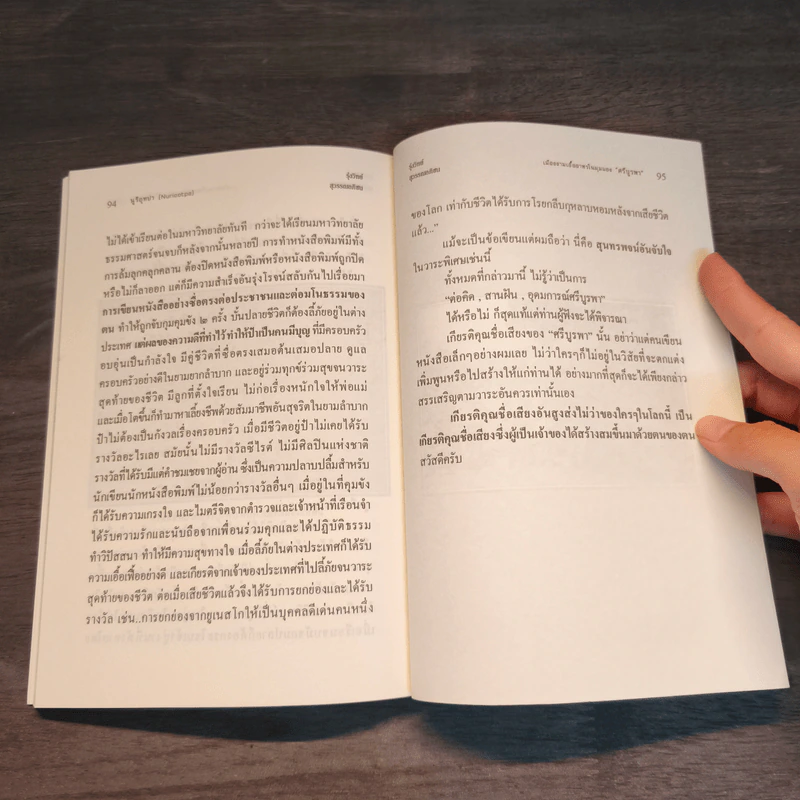 94 นูริอุทย่า (Nurieatya)
รุ่งวิทย์
สุวรรณอภิชน
ไม่ได้เข้าเรียนต่อในมหาวิทยาลัยทันที กว่าจะได้เรียนมหาวิทยาลัย
ธรรมศาสตร์จนจบก็หลังจากนั้นหลายปี การทำหนังสือพิมพ์มีทั้ง
การล้มลุกคลุกคลาน ต้องปิดหนังสือพิมพ์หรือหนังสือพิมพ์ถูกปิด
หรือไม่ก็ลาออก แต่ก็มีความสำเร็จอันรุ่งโรจน์สลับกันไปเรื่อยมา
การเขียนหนังสืออย่างซื่อตรงต่อประชาชนและต่อมโนธรรมของ
ตน ทำให้ถูกจับกุมคุมขัง ๒ ครั้ง บั้นปลายชีวิตก็ต้องลี้ภัยอยู่ในต่าง
ประเทศ แต่ผลของความดีที่ทำไว้ทำให้ป้าเป็นคนมีบุญ ที่มีครอบครัว
อบอุ่นเป็นกำลังใจ มีคู่ชีวิตที่ซื่อตรงเสมอต้นเสมอปลาย ดูแล
ครอบครัวอย่างดีในยามยากลำบาก และอยู่ร่วมทุกข์ร่วมสุขจนวาระ
สุดท้ายของชีวิต มีลูกที่ตั้งใจเรียน ไม่ก่อเรื่องหนักใจให้พ่อแม่
และเมื่อโตขึ้นก็ทำมาหาเลี้ยงชีพด้วยสัมมาชีพอันสุจริตในยามลำบาก
ป้าไม่ต้องเป็นกังวลเรื่องครอบครัว เมื่อมีชีวิตอยู่ป้าไม่เคยได้รับ
รางวัลอะไรเลย สมัยนั้นไม่มีรางวัลซีไรต์ ไม่มีศิลปินแห่งชาติ
รางวัลที่ได้รับมีแต่คำชมเชยจากผู้อ่าน ซึ่งเป็นความปลาบปลื้มสำหรับ
นักเขียนนักหนังสือพิมพ์ไม่น้อยกว่ารางวัลอื่นๆ เมื่ออยู่ในที่คุมขัง
ก็ได้รับความเกรงใจ และไมตรีจิตจากตำรวจและเจ้าหน้าที่เรือนจำ
ได้รับความรักและนับถือจากเพื่อนร่วมคุกและได้ปฏิบัติธรรม
ทำวิปัสสนา ทำให้มีความสุขทางใจ เมื่อลี้ภัยในต่างประเทศก็ได้รับ
ความเอื้อเฟื้ออย่างดี และเกียรติจากเจ้าของประเทศที่ไปลี้ภัยจนวาระ
สุดท้ายของชีวิต ต่อเมื่อเสียชีวิตแล้วจึงได้รับการยกย่องและได้รับ
รางวัล เช่น..การยกย่องจากยูเนสโกให้เป็นบุคคลดีเด่นคนหนึ่ง
รุ่งวิทย์
สุวรรณอภิชน
"ศรีบูรพา" 95
ของโลก เท่ากับชีวิตได้รับการโรยกลีบกุหลาบหอมหลังจากเสียชีวิต
แล้ว..."
แม้จะเป็นข้อเขียนแต่ผมถือว่า นี่คือ สุนทรพจน์อันจับใจ
ในวาระพิเศษเช่นนี้
ทั้งหมดที่กล่าวมานี้ ไม่รู้ว่าเป็นการ
"ต่อคิด , สานฝัน , อุดมการณ์ศรีบูรพา"
ได้หรือไม่ ก็สุดแท้แต่ท่านผู้ฟังจะได้พิจารณา
เกียรติคุณชื่อเสียงของ "ศรีบูรพา" นั้น อย่าว่าแต่คนเขียน
หนังสือเล็กๆอย่างผมเลย ไม่ว่าใครๆก็ไม่อยู่ในวิสัยที่จะตกแต่ง
เพิ่มพูนหรือไปสร้างให้แก่ท่านได้ อย่างมากที่สุดก็จะได้เพียงกล่าว
สรรเสริญตามวาระอันควรเท่านั้นเอง
เกียรติคุณชื่อเสียงอันสูงส่งไม่ว่าของใครๆในโลกนี้ เป็น
เกียรติคุณชื่อเสียงซึ่งผู้เป็นเจ้าของได้สร้างสมขึ้นมาด้วยตนของตน
สวัสดีครับ